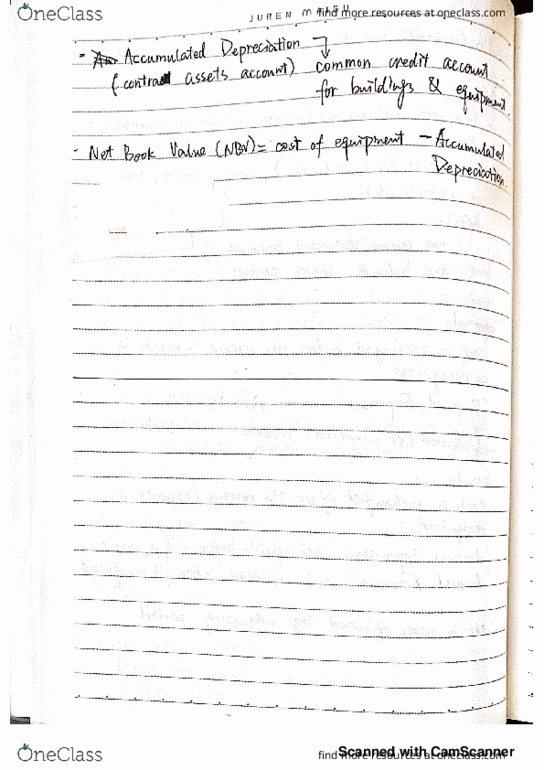 OneClass
find more resources at oneclass.com
- Accumulated Depreciation
(contra assets account) common credit account
for buildings & equipment
- Net Book Value (NBV) = cost of equipment - Accumulated
Depreciation
OneClass
find more resources at oneclass.com
Scanned with CamScanner